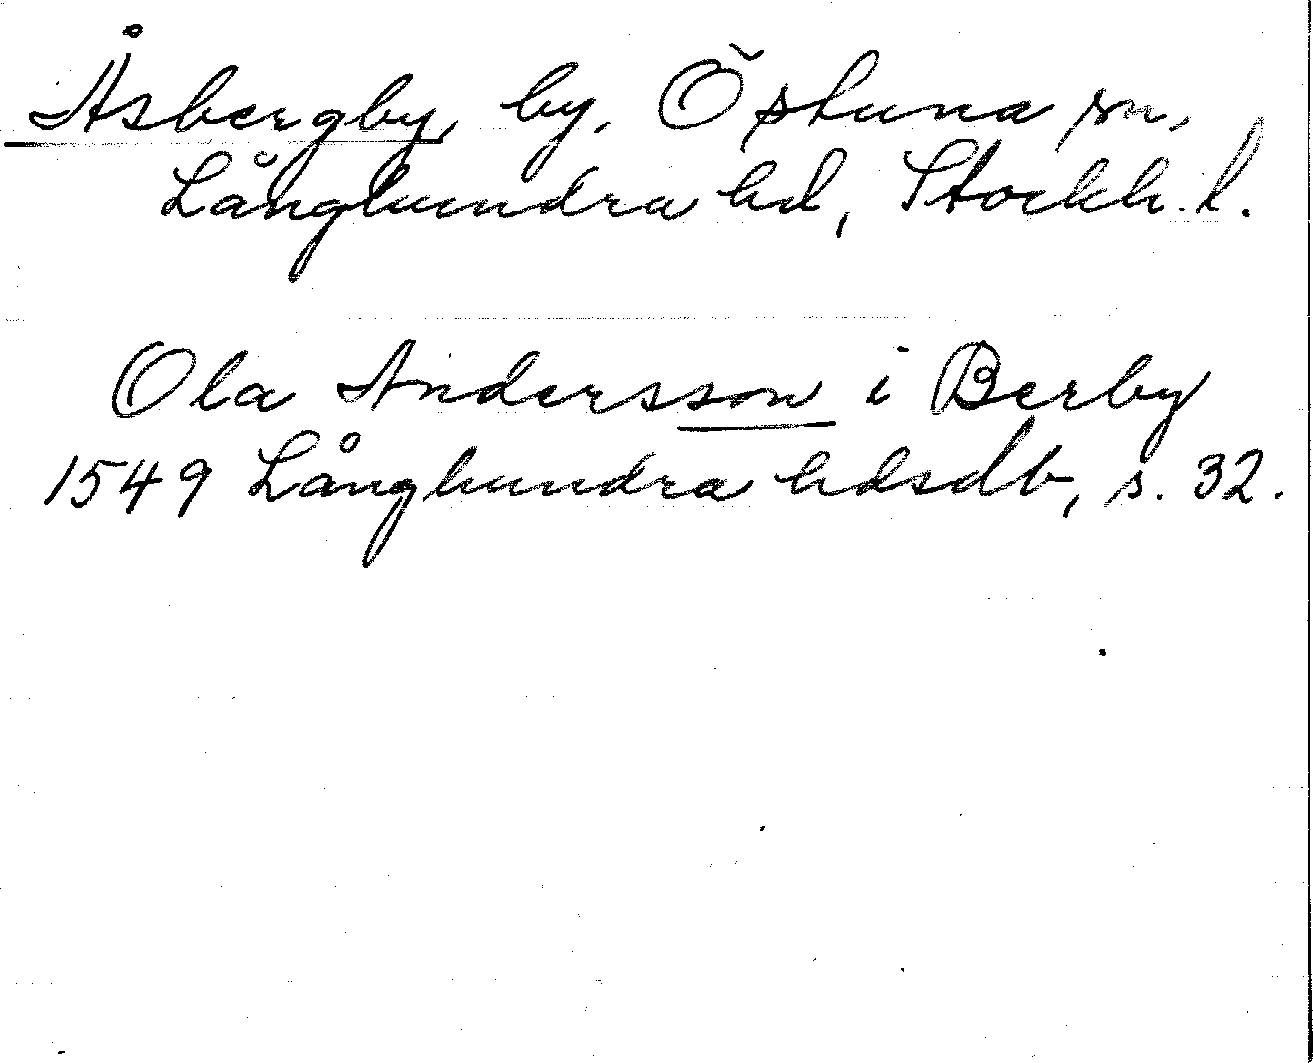 Åsbergby, by, Östuna sn,
Långhundra hd, Stockh. l.
Ola Andersson i Berby
1549 Långhundra hdsdb, s. 32.